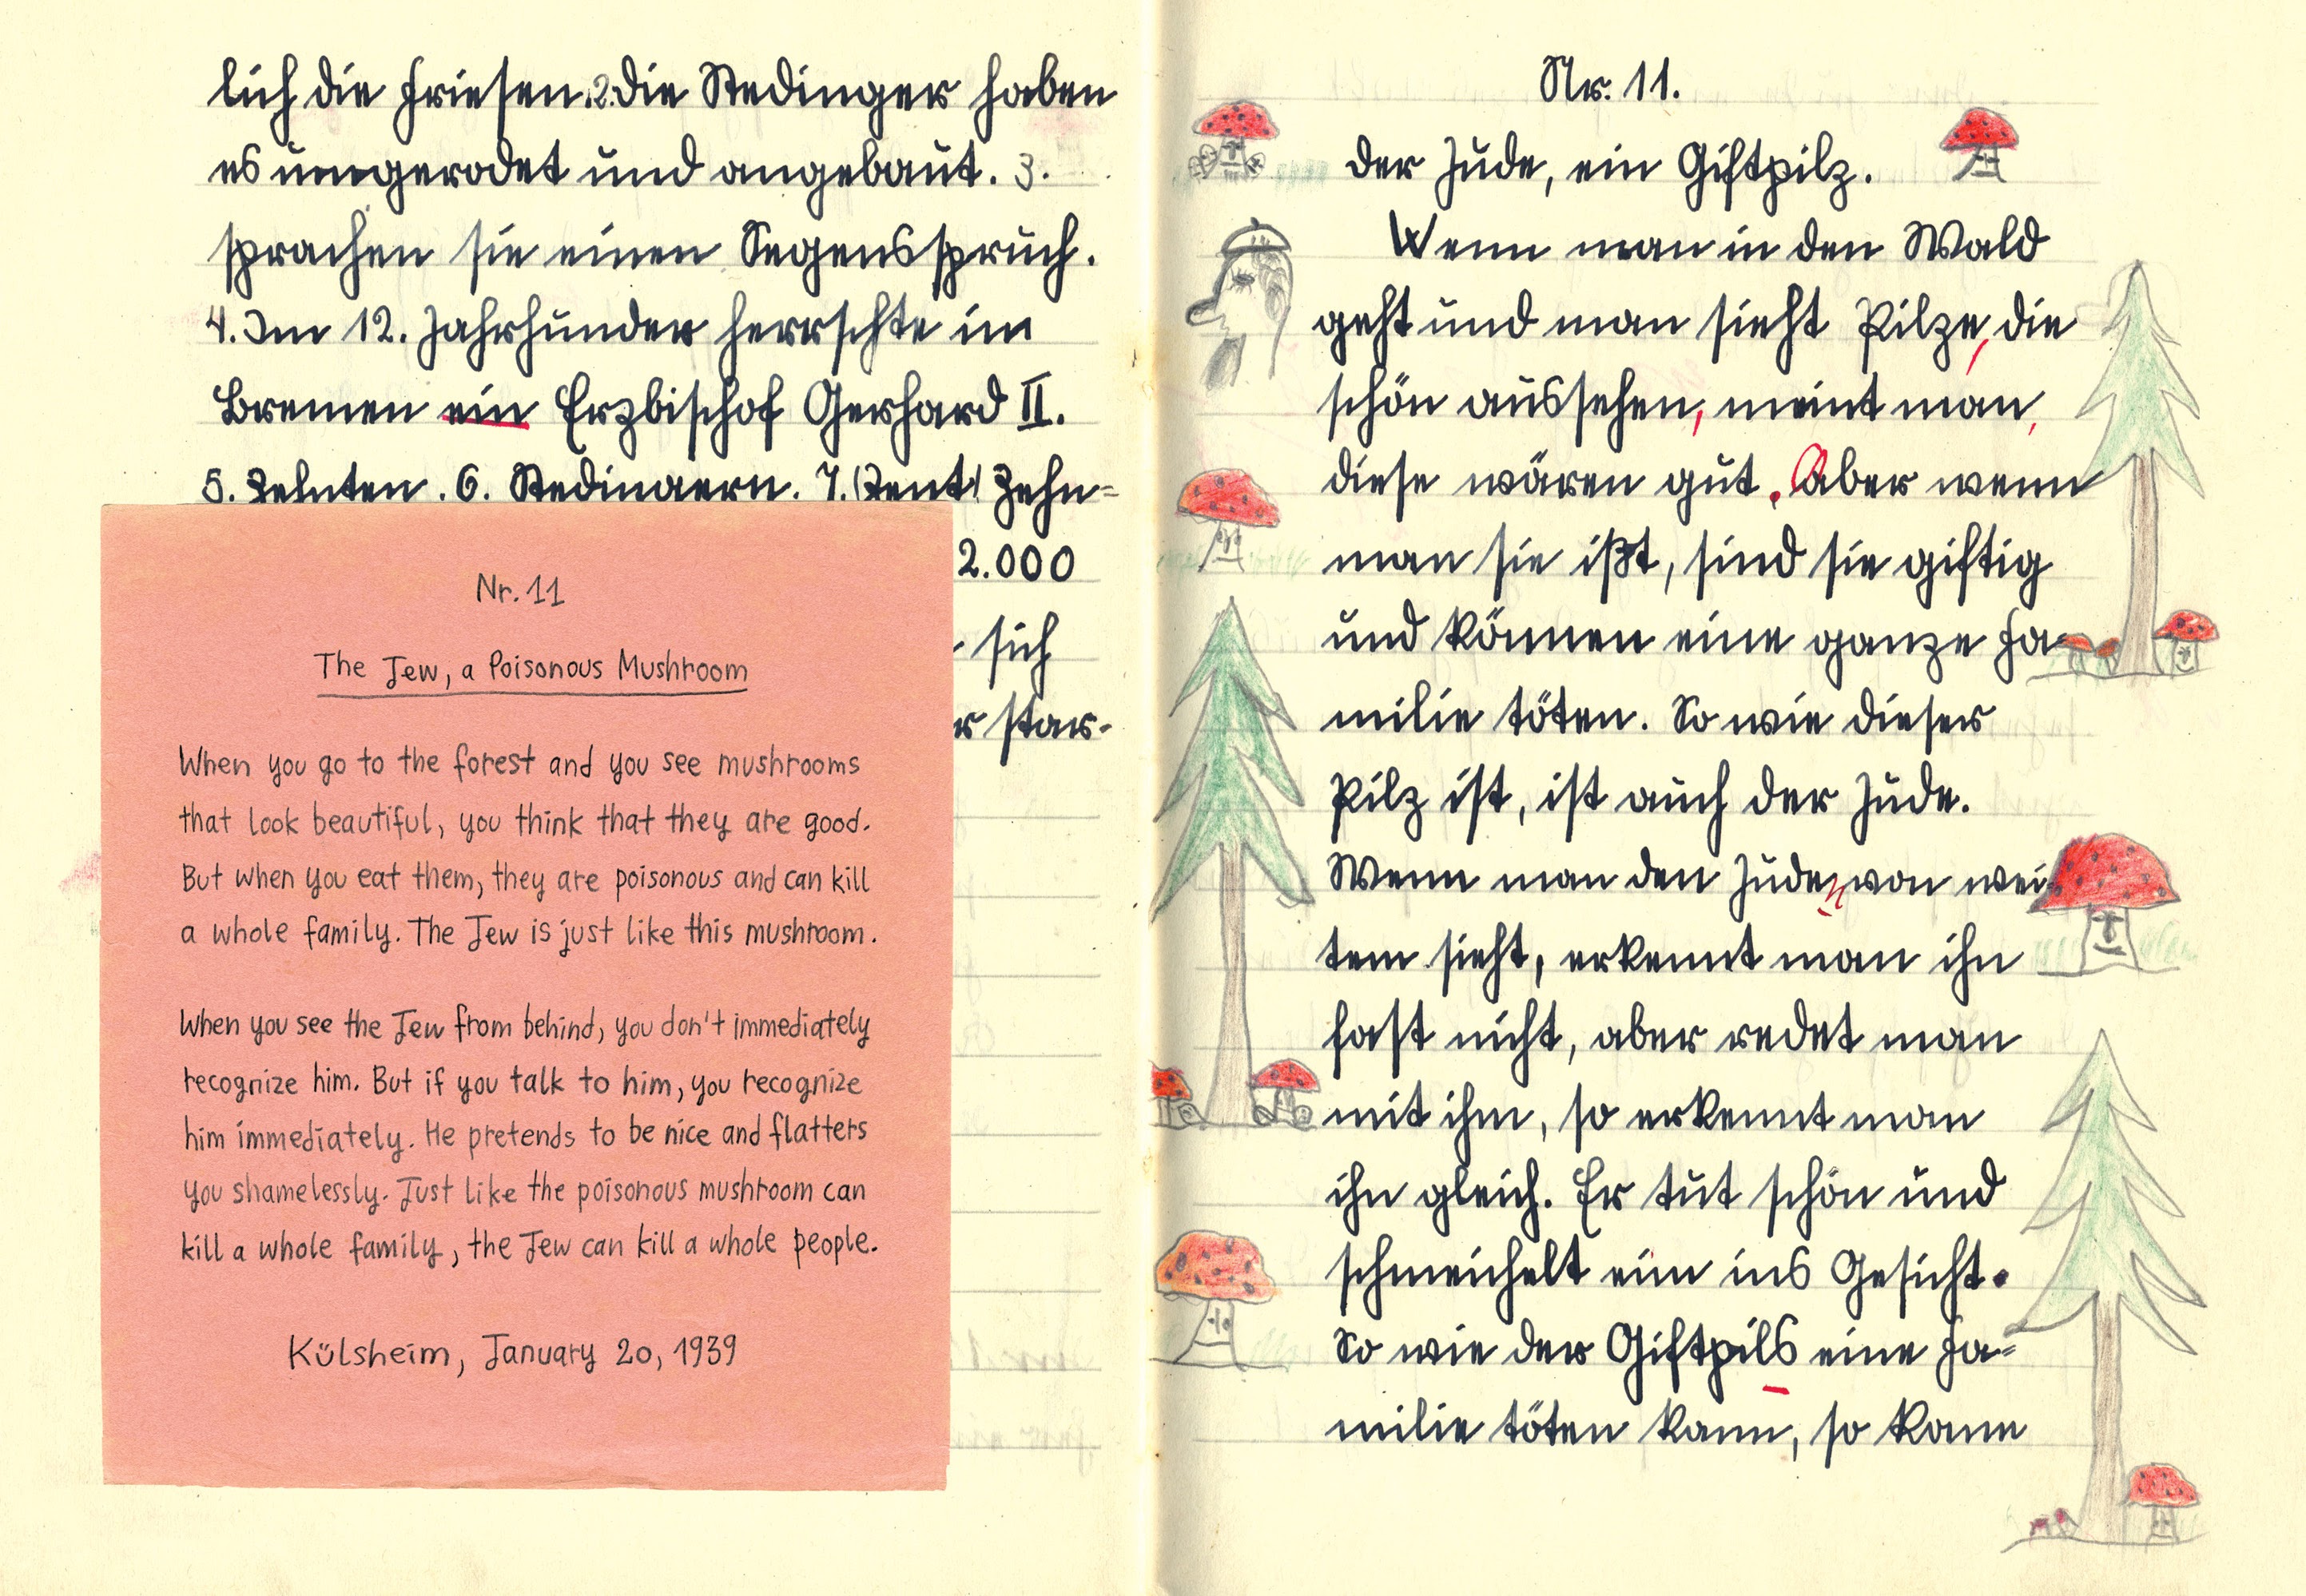 lich die Friesen. 2. Die Stedinger haben
es umgerodet und angebaut. 3.
sprachen sie einen Segensspruch.
4. Im 12. Jahrhunder herrschte im
Bremen ein Erzbischof Gerhard II.
5. Zehnten. 6. Stedingern. 7. (Zent) Zehn=
2.000
sich
r star-
Nr. 11
The Jew, a Poisonous Mushroom
When you go to the forest and you see mushrooms
that look beautiful, you think that they are good.
But when you eat them, they are poisonous and can kill
a whole family. The Jew is just like this mushroom.
When you see the Jew from behind, you don't immediately
recognize him. But if you talk to him, you recognize
him immediately. He pretends to be nice and flatters
you shamelessly. Just like the poisonous mushroom can
kill a whole family, the Jew can kill a whole people.
Külsheim, January 20, 1939
Nr. 11.
Der Jude, ein Giftpilz.
Wenn man in den Wald
geht und man sieht Pilze, die
schön aussehen, meint man,
diese wären gut. Aber wenn
man sie ißt, sind sie giftig
und können eine ganze Fa-
milie töten. So wie dieser
Pilz ist, ist auch der Jude.
Wenn man den Juden von wei
tem sieht, erkennt man ihn
fast nicht, aber redet man
mit ihm, so erkennt man
ihn gleich. Er tut schön und
schmeichelt eim ins Gesicht.
So wie der Giftpils eine Fa=
milie töten kann, so kann